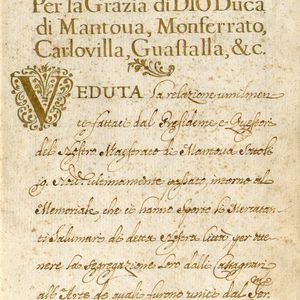 Per la Grazia di DIO Duca
di Mantoua, Monferrato,
Carlovilla, Guastalla, &c.
VEDUTA la relazione umilmen
te fattaci dal Presidente e Questori
del Nostro Magistrato di Mantoua sotto li
30. Nov.e ultimamente passato, intorno al
Memoriale che ci hanno sporto li Mercatan
ti Salumari di detta Nostra Città, per otte
nere la segregazione loro dalli Lasagnari
all' Arte de quali furono uniti dal Ser.